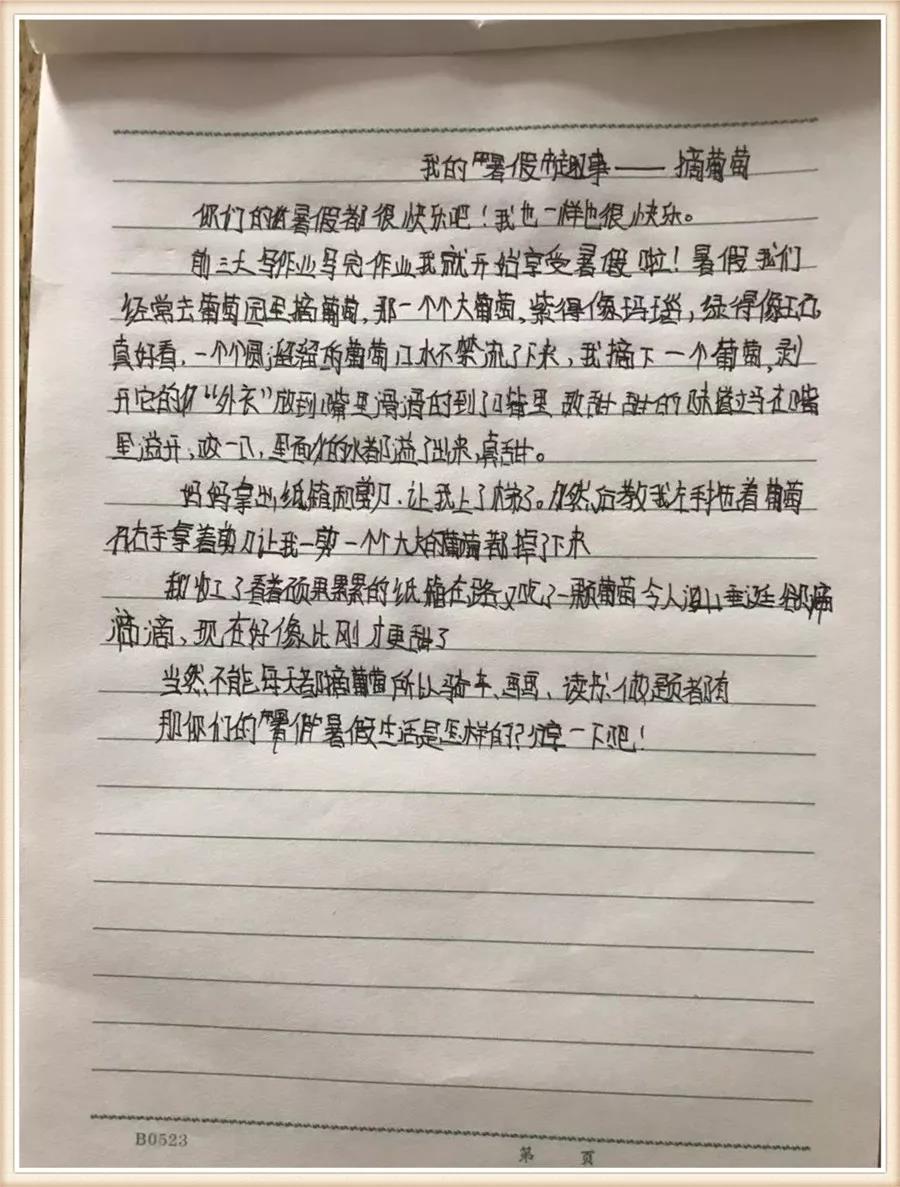 我的暑假趣事——摘葡萄
你们的暑假都很快乐吧！我也一样也很快乐。
前三天写作业写完作业我就开始享受暑假啦！暑假我们
经常去葡萄园里摘葡萄，那一个个大葡萄，紫得像玛瑙，绿得像
真好看，一个个圆溜溜的葡萄口水不禁流了下来，我摘下一个葡萄，剥
开它的“外衣”放到嘴里滑滑的到了口嘴里 甜甜的味道立马在嘴
里溢开，咬一口，里面的水都溢了出来，真甜。
妈妈拿出纸箱和剪刀，让我上了梯了。然后教我左手拖着葡萄
右手拿着剪刀让我一剪一个个大大的葡萄都掉了下来
我收工了看着硕果累累的纸箱在路又吃了一颗葡萄令人垂涎欲滴
滴，现在好像比刚才更甜了
当然不能每天都摘葡萄所以骑车、画画、读书、做题都有
那你们的暑假生活是怎样的？分享一下吧！
B0523
第 页